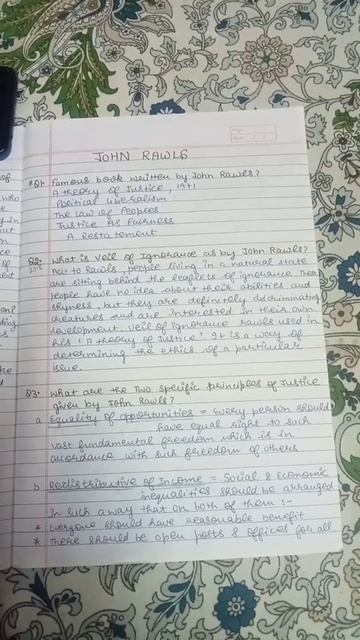 JOHN RAWLS
Q1. Famous book written by John Rawls?
A theory of Justice, 1971
Political liberalism
The Law of Peoples
Justice As Fairness
A Restatement
Q2. What is Veil of Ignorance as by John Rawls?
Acc to Rawls, people living in a natural state
are sitting behind the of ignorance. These
people have no idea about their abilities and
but they are definitely discriminating
creatures and are interested in their own
development. Veil of Ignorance Rawls used in
his 'A theory of Justice'. It is a way of
determining the ethics of a particular
issue.
Q3. What are the Two specific principles of Justice
given by John Rawls?
a Equality of opportunities = every person should
have equal right to such
vast fundamental freedom which is in
accordance with such freedom of others
b Redistributive of Income = Social & Economic
inequalities should be arranged
In such a way that on both of them :-
* Everyone should have reasonable benefit
* There should be open posts & offices for all